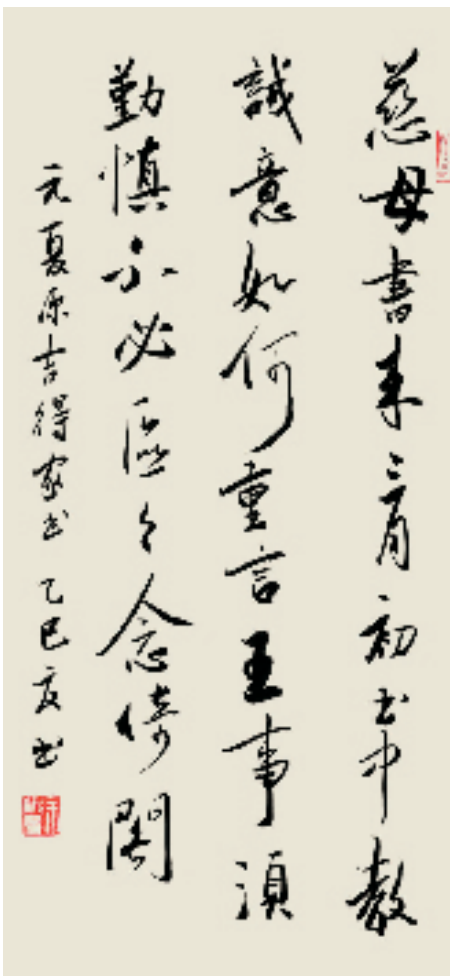 慈母書来三月初书中教
誡意如何重言王事須
勤慎不必區々念倚閭
元夏原吉得家书 乙巳夏书